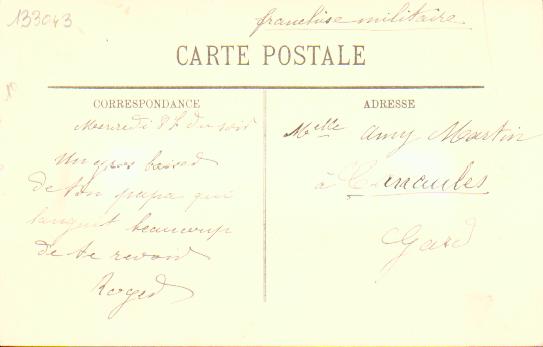 133043
franchise militaire
CARTE POSTALE
CORRESPONDANCE
Mercredi 8h du soir
Un gros baiser
de ton papa qui
languit beaucoup
de te revoir
Roger
ADRESSE
Melle Amy Martin
à Canaules
Gard